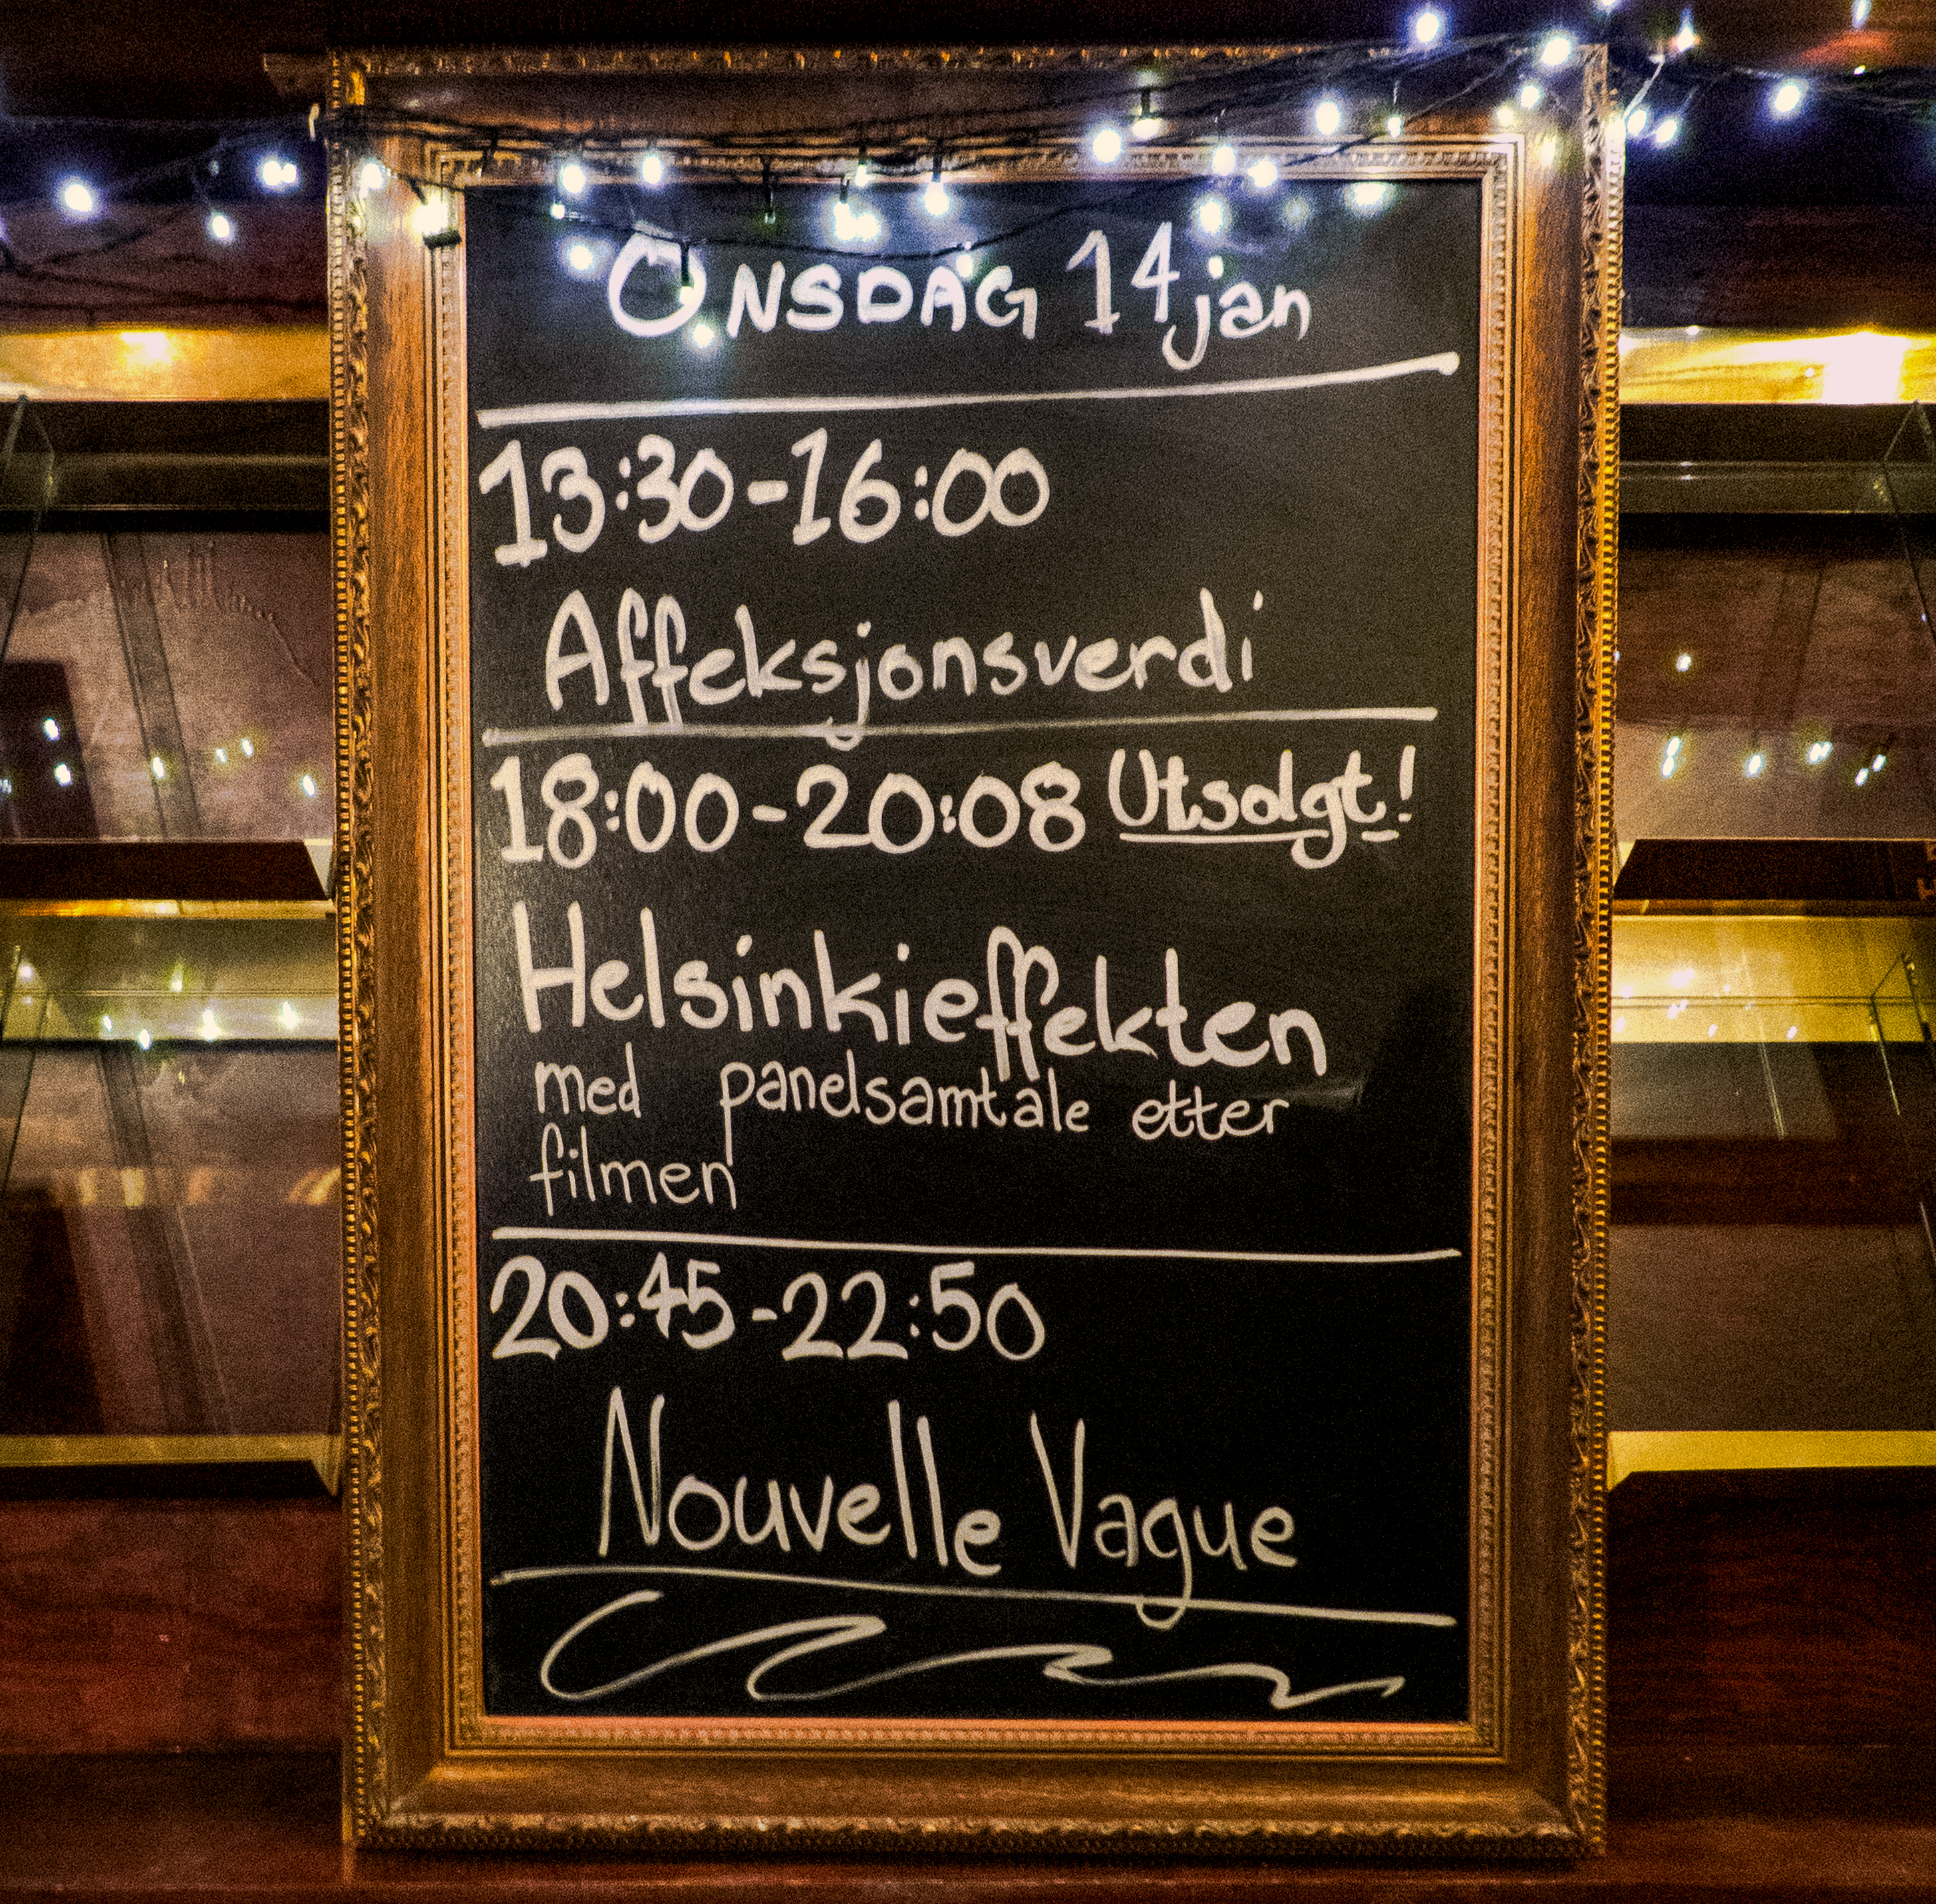 ONSDAG 14 jan
13:30-16:00
Affeksjonsverdi
18:00-20:08 Utsolgt!
Helsinkieffekten
med panelsamtale etter
filmen
20:45-22:50
Nouvelle Vague